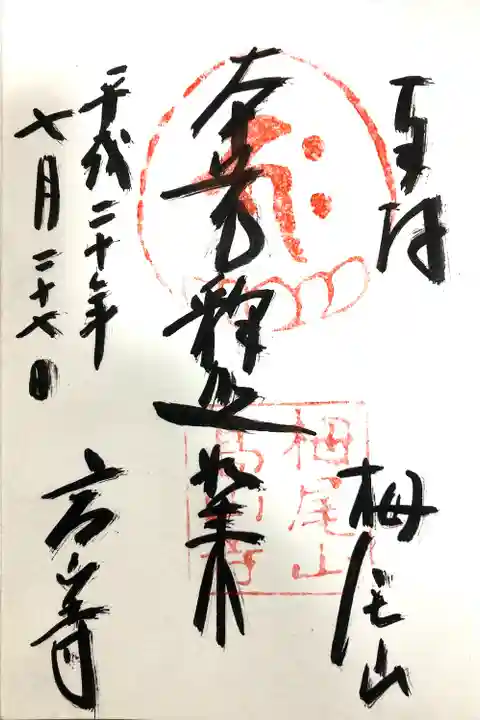 栂尾山
本尊釈迦如来
平成二十年
七月二十七日
高山寺
栂尾山
高山寺